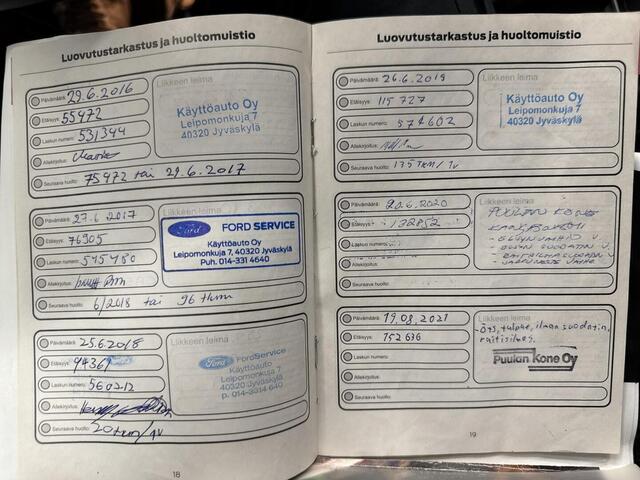 Luovutustarkastus ja huoltomuistio
Päivämäärä: 29.6.2016
Liikkeen leima
Etäisyys: 55472
Laskun numero: 531344
Allekirjoitus:
Seuraava huolto: 75472 tai 29.6.2017
Käyttöauto Oy
Leipomonkuja 7
40320 Jyväskylä
Päivämäärä: 27.6.2017
Liikkeen leima
Etäisyys: 76905
Laskun numero: 545480
Allekirjoitus:
Seuraava huolto: 6/2018 tai 96 tkm
Ford FORD SERVICE
Käyttöauto Oy
Leipomonkuja 7, 40320 Jyväskylä
Puh. 014-331 4640
Päivämäärä: 25.6.2018
Liikkeen leima
Etäisyys: 94369
Laskun numero: 560212
Allekirjoitus:
Seuraava huolto: 20tkm/1v
Ford FordService
Käyttöauto
Leipomonkuja 7
40320 Jyväskylä
p. 014-3314 640
18
Luovutustarkastus ja huoltomuistio
Päivämäärä: 26.6.2019
Liikkeen leima
Etäisyys: 115727
Laskun numero: 574602
Allekirjoitus:
Seuraava huolto: 135TKM/1v
Käyttöauto Oy
Leipomonkuja 7
40320 Jyväskylä
Päivämäärä: 20.6.2020
Liikkeen leima
Etäisyys: 132852
Laskun numero:
Allekirjoitus:
Seuraava huolto:
PUULAN KONE
- ÖLJYNVAIHTO
Päivämäärä: 19.08.2021
Liikkeen leima
Etäisyys: 152636
Laskun numero:
Allekirjoitus:
Seuraava huolto:
- Öljy, tulpat, ilmansuodatin,
raitisilma.
Puulan Kone Oy
19